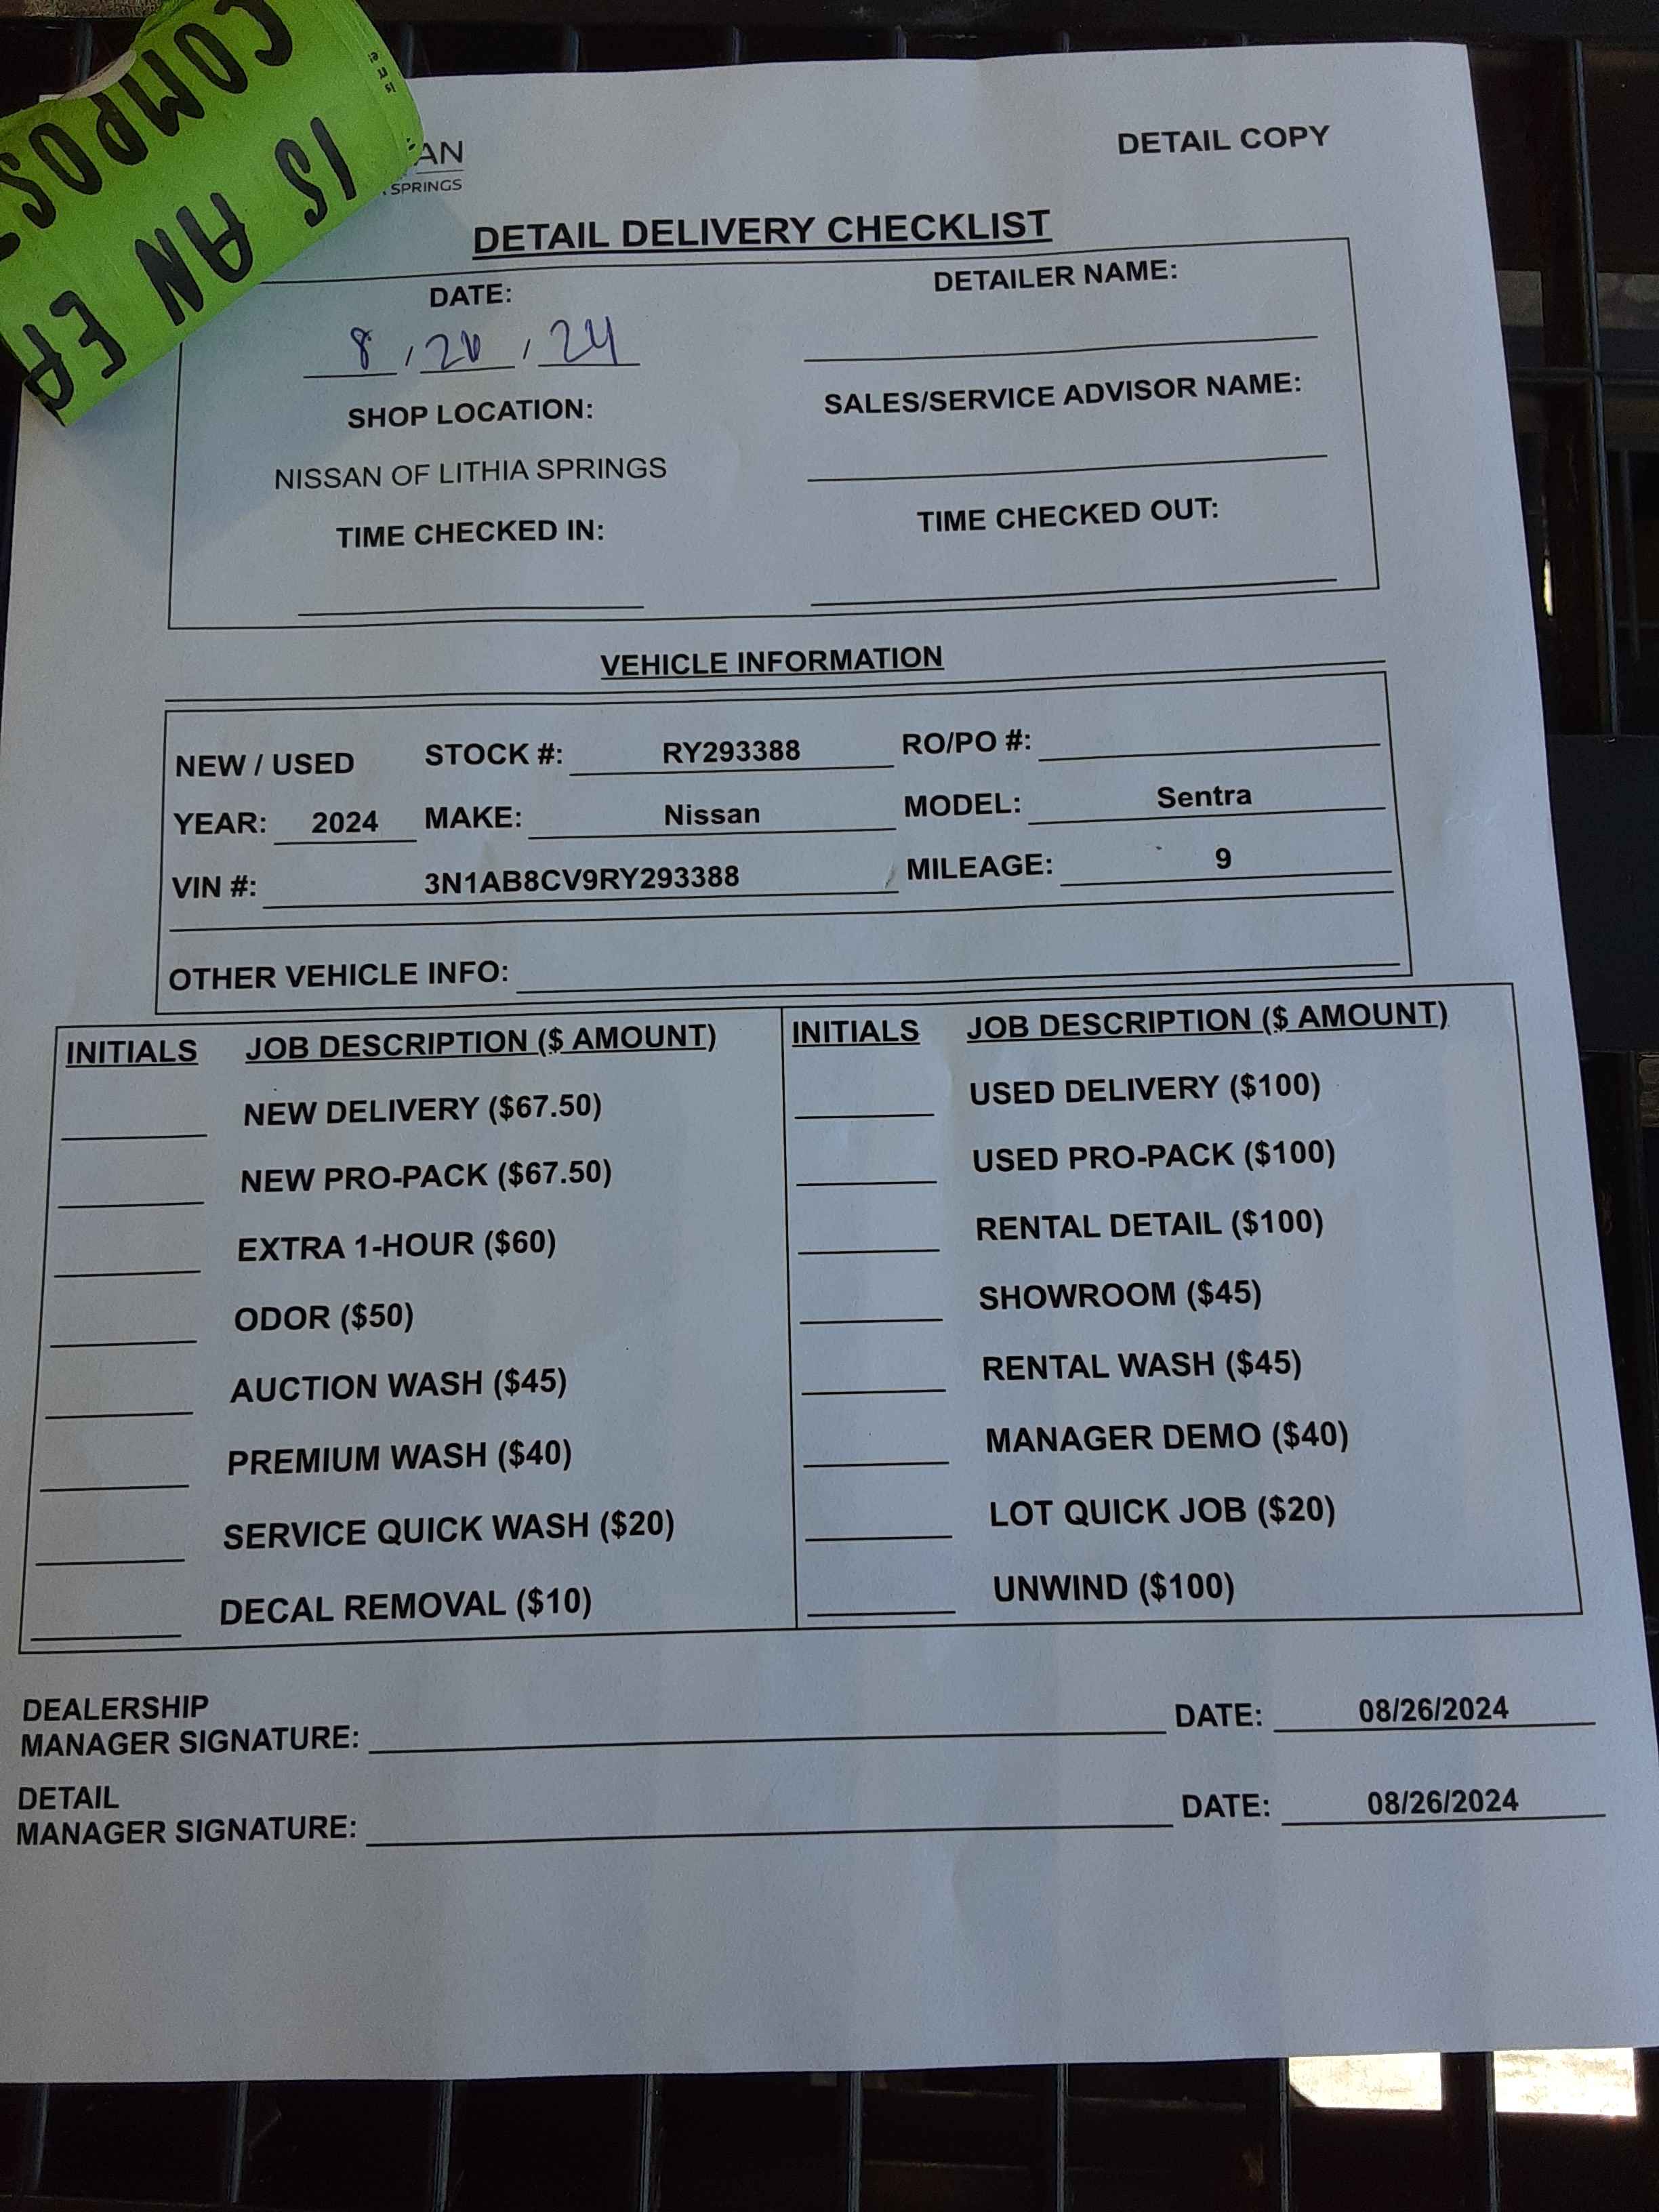 COMPOS
IS AN EA
AN
SPRINGS
DETAIL COPY
DETAIL DELIVERY CHECKLIST
DATE:
DETAILER NAME:
8 / / 24
SHOP LOCATION:
SALES/SERVICE ADVISOR NAME:
NISSAN OF LITHIA SPRINGS
TIME CHECKED IN:
TIME CHECKED OUT:
VEHICLE INFORMATION
NEW / USED STOCK #: RY293388 RO/PO #:
YEAR: 2024 MAKE: Nissan MODEL: Sentra
VIN #: 3N1AB8CV9RY293388 MILEAGE: 9
OTHER VEHICLE INFO:
INITIALS JOB DESCRIPTION ($ AMOUNT) INITIALS JOB DESCRIPTION ($ AMOUNT)
NEW DELIVERY ($67.50) USED DELIVERY ($100)
NEW PRO-PACK ($67.50) USED PRO-PACK ($100)
EXTRA 1-HOUR ($60) RENTAL DETAIL ($100)
ODOR ($50) SHOWROOM ($45)
AUCTION WASH ($45) RENTAL WASH ($45)
PREMIUM WASH ($40) MANAGER DEMO ($40)
SERVICE QUICK WASH ($20) LOT QUICK JOB ($20)
DECAL REMOVAL ($10) UNWIND ($100)
DEALERSHIP
MANAGER SIGNATURE: DATE: 08/26/2024
DETAIL
MANAGER SIGNATURE: DATE: 08/26/2024